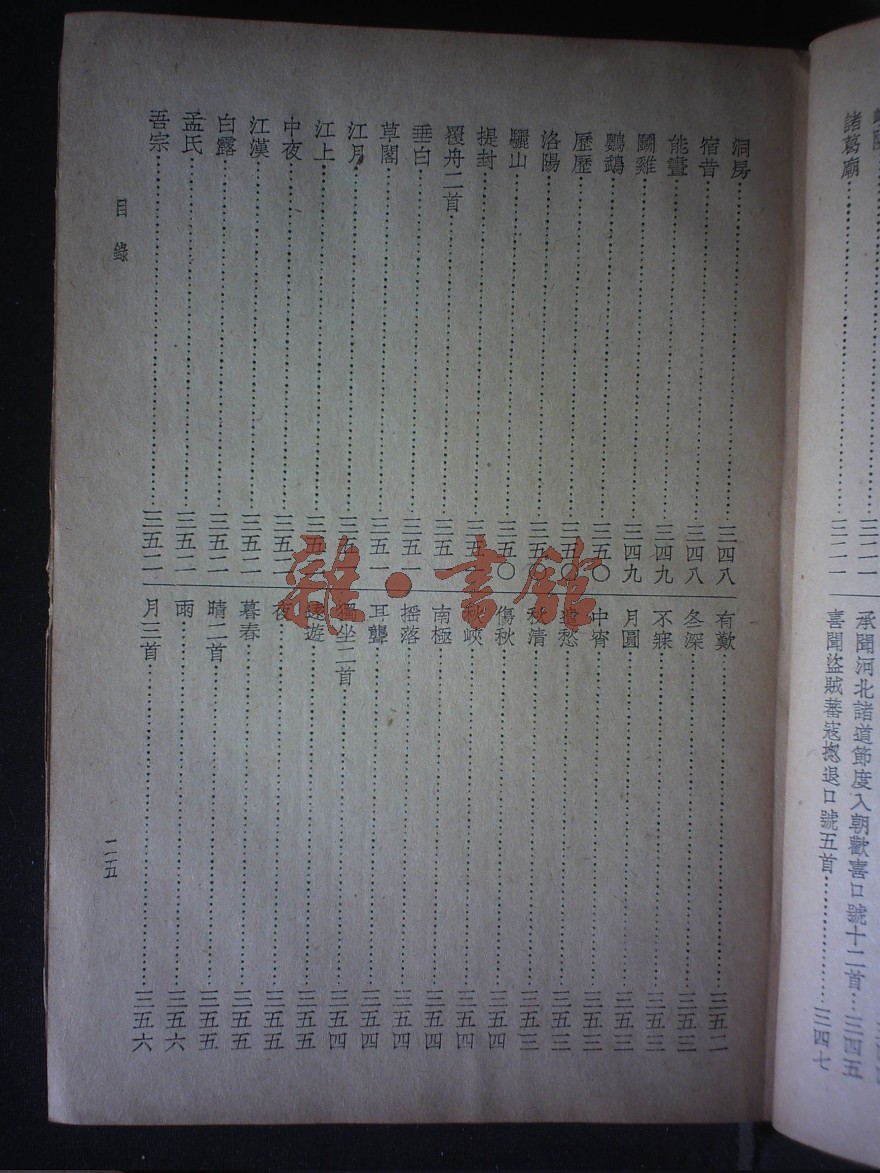 諸葛廟
承聞河北諸道節度入朝歡喜口號十二首…三四五
喜聞盜賊蕃寇總退口號五首……三四七
洞房……三四八
宿昔……三四八
能畫……三四九
鬭雞……三四九
鸚鵡……三五〇
歷歷……三五〇
洛陽……三五〇
驪山……三五〇
提封……三五一
覆舟二首……三五一
垂白……三五一
草閣……三五一
江月……三五一
江上……三五二
中夜……三五二
江漢……三五二
白露……三五二
孟氏……三五二
吾宗……三五二
有歎……三五二
冬深……三五三
不寐……三五三
月圓……三五三
中宵……三五三
遣愁……三五三
秋清……三五三
傷秋……三五四
秋峽……三五四
南極……三五四
搖落……三五四
耳聾……三五四
獨坐二首……三五四
遠遊……三五五
夜……三五五
暮春……三五五
晴二首……三五五
雨……三五六
月三首……三五六
目錄
一二五
雜·書館